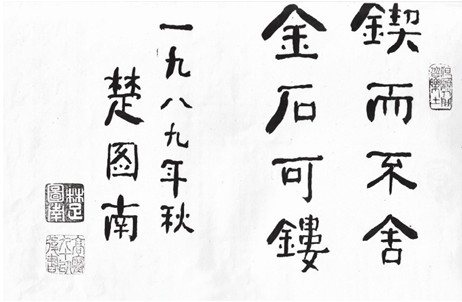 鍥而不舍
金石可鏤
一九八九年秋
楚图南
楚圖南